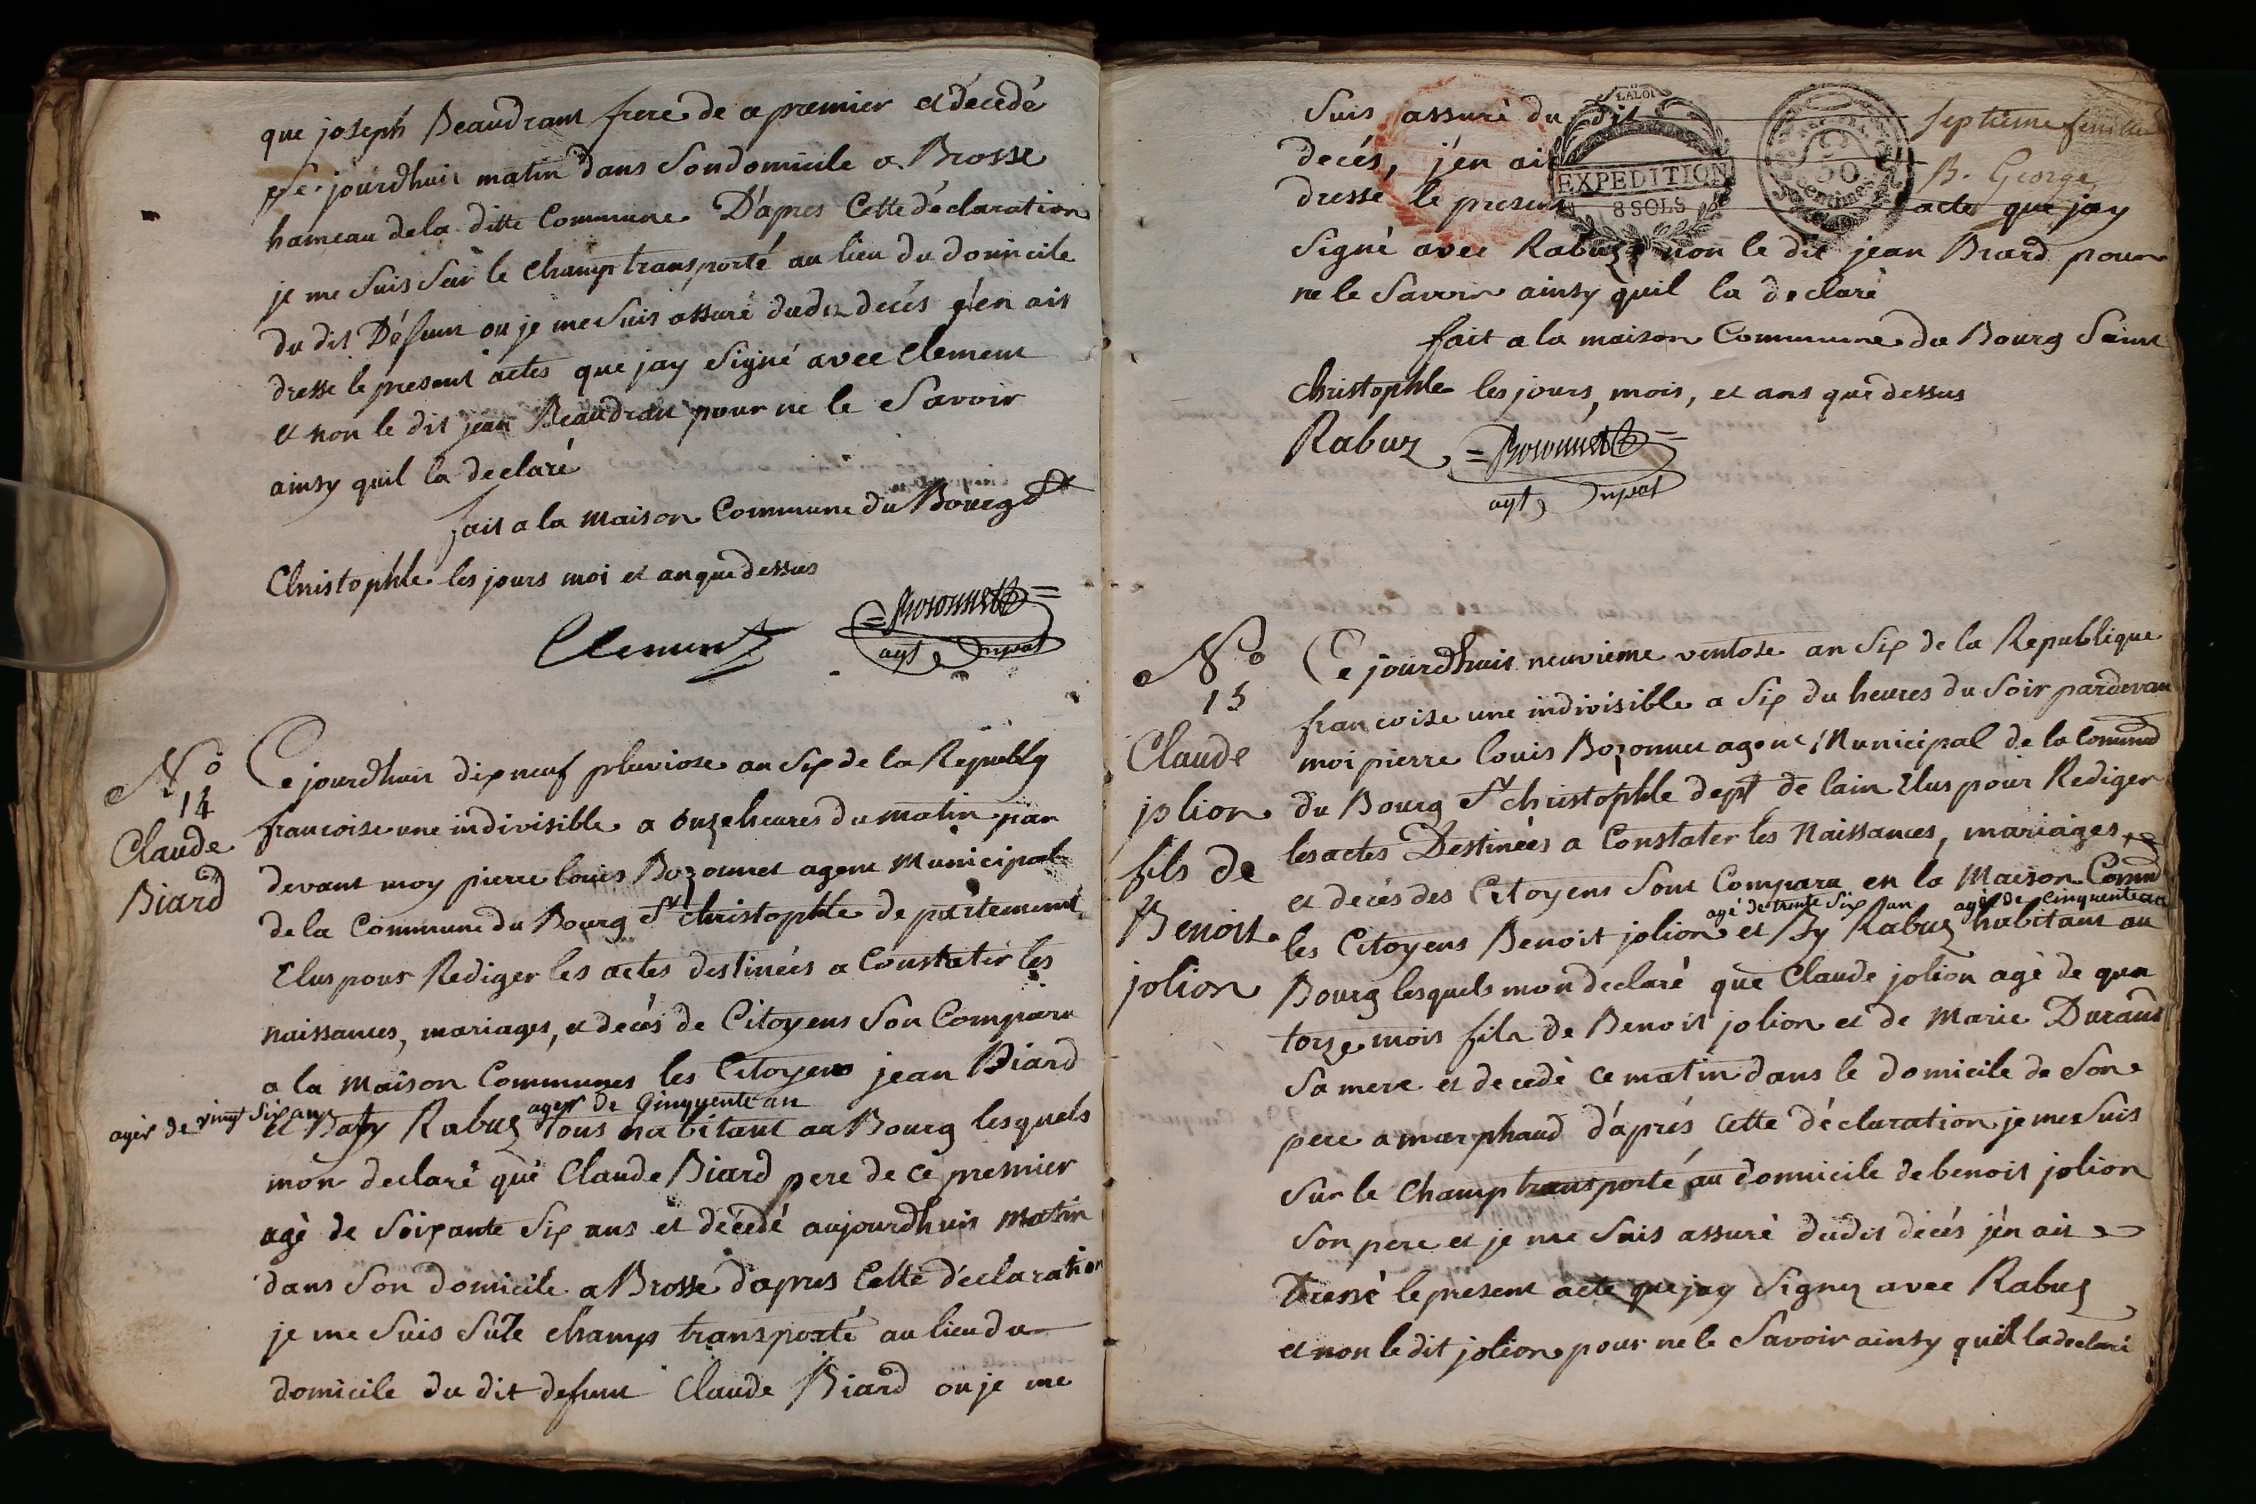 que joseph Beaudrant frere de a premier et décedé
jourdhuit matin dans Son domicile a Brosse
hameau de la ditte Commune D'apres Cette déclaration
je me Suis Sur le Champ transporté au lieu du domicile
du dit Défunt ou je me Suis assuré dudit decés j'en ait
dresse le present actes que jay Signé avec Clement
et non le dit jean Beaudran pour ne le Savoir
ainsy quil la declaré
fait a la maison Commune du Bourg St
Christophle les jours moi et an que dessus
Clement
Bozonnet
agt
No
14
Claude
Biard
Ce jourdhuit dix neuf pluviose an Six de la Republq
francoise une indivisible a onze heures du matin par
devant moy pierre louis Bozonnet agent Municipal
de la Commune du Bourg St christophle departement
Elus pour Rediger les actes destinées a Constatér les
naissances, mariages, et decés de Citoyens Son Comparu
a la maison Communes les Citoyens jean Biard
agér de vingt Six ans
agér de Cinquente an
et Baty Rabuz tous habitant au Bourg lesquels
mon declaré que Claude Biard pere de ce premier
agé de Soixante Six ans et décedé aujourdhuit matin
dans Son domicile a Brosse d'apres Cette déclaration
je me Suis Sur le champs transporté au lieu du
domicile du dit defunt Claude Biard ou je me
Suis assuré du dit
decés, j'en ait
dressé le present acte que jay
septieme feuille
B. George
LA LOI
EXPEDITION
8 SOLS
50
Centimes
Signé avec Rabuz et non le dit jean Biard pour
ne le Savoir ainsy quil la declaré
fait a la maison Commune du Bourg Saint
christophle les jours, mois, et ans que dessus
Rabuz
Bozonnet
agt
No
15
Claude
jolion
fils de
Benoit
jolion
Ce jourdhuit neuvieme ventose an Six de la Republique
francoise une indivisible a Six du heures du Soir pardevan
moi pierre louis Bozonnet agent Municipal de la Commd
du Bourg St christophle dept de lain Elus pour Rediger
les actes Destinées a Constater les Naissances, mariages,
et decés des Citoyens Sont Comparu en la Maison Commd
agé de trente Six an
agé de Cinquente an
les Citoyens Benoit jolion et By Rabuz habitant au
Bourg lesquels mon declaré que Claude jolion agé de qua
torze mois fils de Benoit jolion et de Marie Durand
Sa mere et decedé ce matin dans le domicile de Son
pere a marphaud d'aprés Cette déclaration je me Suis
Sur le Champ transporté au domicile de benoit jolion
Son pere et je me Suis assuré dudit decés j'en ait
Dressé le present acte que jay Signez avec Rabuz
et non le dit jolion pour ne le Savoir ainsy quil la declaré